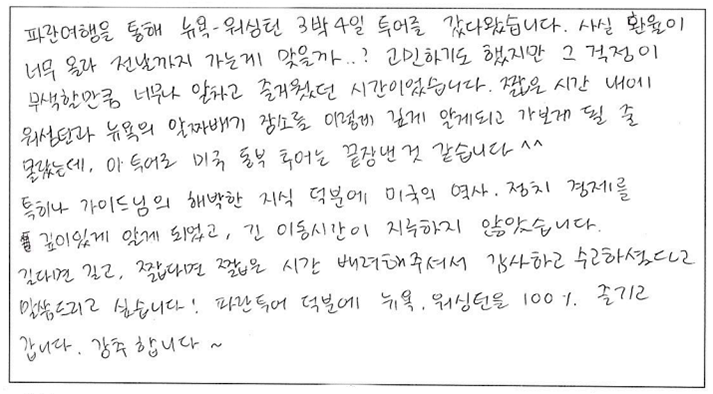 파란여행을 통해 뉴욕-워싱턴 3박4일 투어를 갔다왔습니다. 사실 환율이
너무 올라 전날까지 가는게 맞을까..? 고민하기도 했지만 그 걱정이
무색할만큼 너무나 알차고 즐거웠던 시간이었습니다. 짧은 시간 내에
워싱턴과 뉴욕의 알짜배기 장소를 이렇게 깊게 알게되고 가보게 될 줄
몰랐는데, 이 투어로 미국 동부 투어는 끝장낸 것 같습니다 ^^
특히나 가이드님의 해박한 지식 덕분에 미국의 역사. 정치 경제를
깊이있게 알게 되었고, 긴 이동시간이 지루하지 않았습니다.
길다면 길고, 짧다면 짧은 시간 배려해주셔서 감사하고 수고하셨다고
말씀드리고 싶습니다! 파란투어 덕분에 뉴욕. 워싱턴을 100% 즐기고
갑니다. 강추합니다 ~